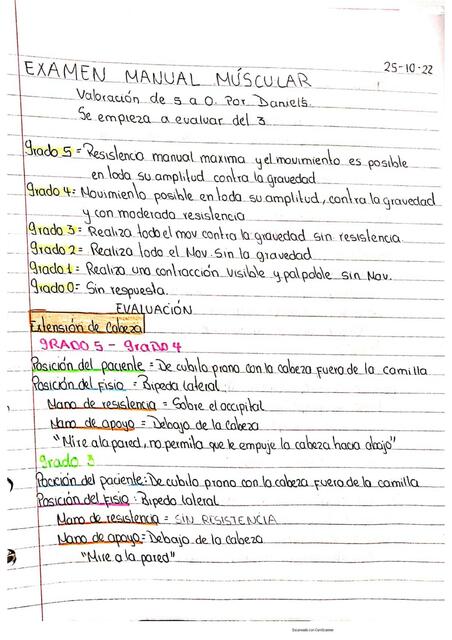 25-10-22
EXAMEN MANUAL MÚSCULAR
Valoración de 5 a 0. Por Daniels.
Se empieza a evaluar del 3
Grado 5 = Resistencia manual maxima y el movimiento es posible
en toda su amplitud contra la gravedad
Grado 4 = Movimiento posible en toda su amplitud, contra la gravedad
y con moderada resistencia
Grado 3 = Realiza todo el mov contra la gravedad sin resistencia.
Grado 2 = Realiza todo el Mov. Sin la gravedad
Grado 1 = Realiza una contracción visible y palpable sin Mov.
Grado 0 = Sin respuesta.
EVALUACIÓN
Extensión de Cabeza
GRADO 5 - GraDO 4
Posición del paciente = De cubito prono con la cabeza fuera de la camilla
Posición del fisio = Bipeda lateral
Mano de resistencia = Sobre el occipital
Mano de apoyo = Debajo de la cabeza
"Mire a la pared, no permita que le empuje la cabeza hacia abajo"
Grado 3
Posición del paciente: De cubito prono con la cabeza fuera de la camilla
Posición del fisio: Bipedo lateral
Mano de resistencia = SIN RESISTENCIA
Mano de apoyo = Debajo de la cabeza
"Mire a la pared"
Escaneado con CamScanner